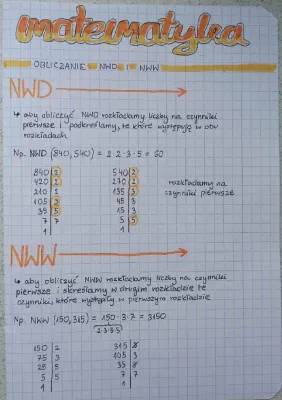 matematyka
OBLICZANIE NWD I NWW
NWD
↳ aby obliczyć NWD rozkładamy liczby na czynniki
pierwsze i podkreślamy, te które występują w obu
rozkładach
Np. NWD (840, 540) = 2·2·3·5 = 60
840 | 2 540 | 2
420 | 2 270 | 2 rozkładamy na
210 | 2 135 | 3 czynniki pierwsze
105 | 3 45 | 3
35 | 5 15 | 3
7 | 7 5 | 5
1 | 1 |
NWW
↳ aby obliczyć NWW rozkładamy liczby na czynniki
pierwsze i skreślamy w drugim rozkładzie te
czynniki, które wystąpiły w pierwszym rozkładzie
Np. NWW (150, 315) = 150·3·7 = 3150
2·3·5·5
150 | 2 315 | 3
75 | 3 105 | 3
25 | 5 35 | 5
5 | 5 7 | 7
1 | 1 |